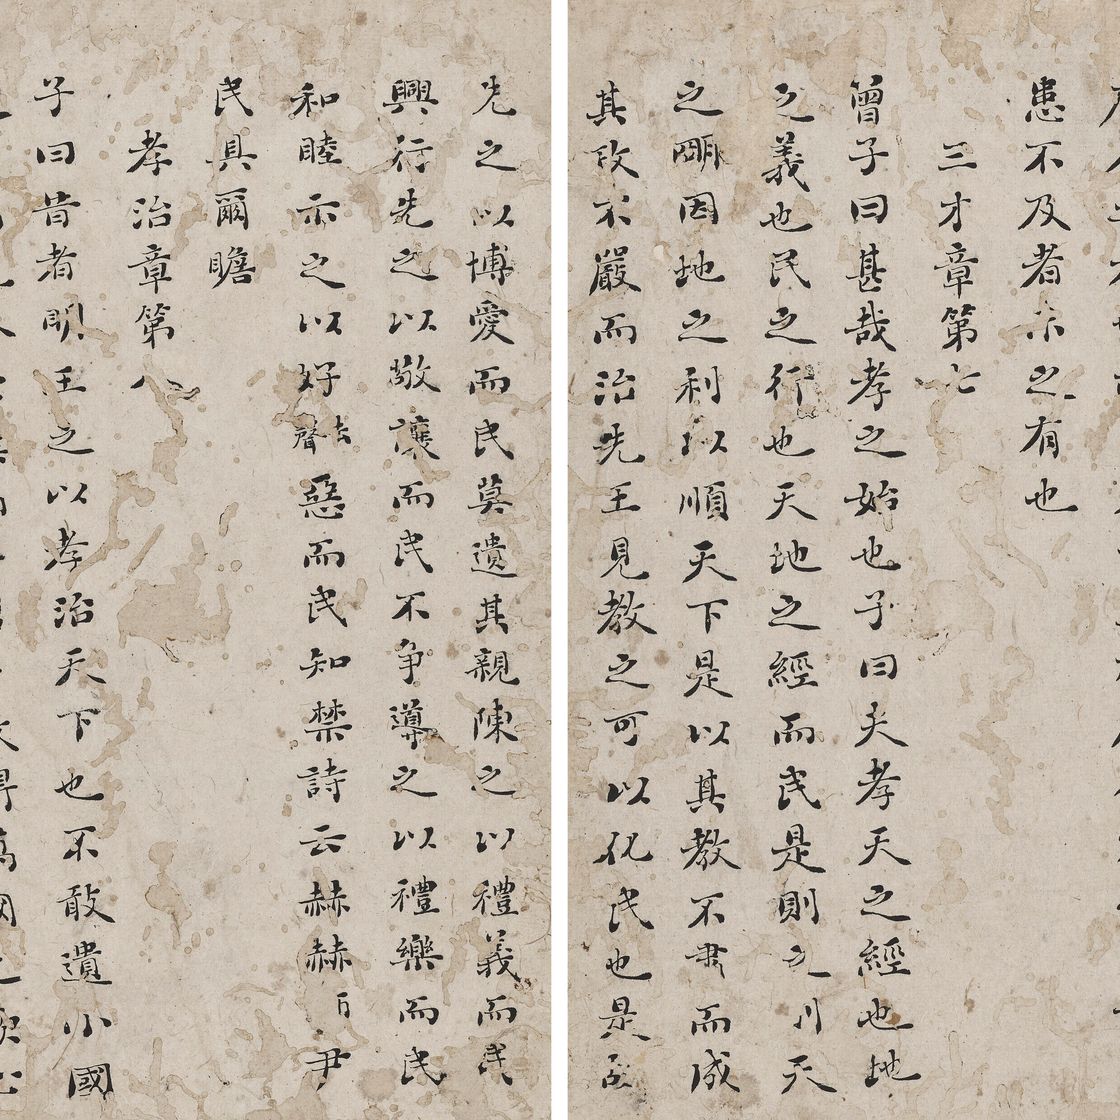 患不及者未之有也
三才章第七
曾子曰甚哉孝之始也子曰夫孝天之經也地
之義也民之行也天地之經而民是則之則天
之明因地之利以順天下是以其教不肅而成
其政不嚴而治先王見教之可以化民也是故
先之以博愛而民莫遺其親陳之以禮義而民
興行先之以敬讓而民不争導之以禮樂而民
和睦示之以好去聲惡而民知禁詩云赫赫師尹
民具爾瞻
孝治章第八
子曰昔者明王之以孝治天下也不敢遺小國